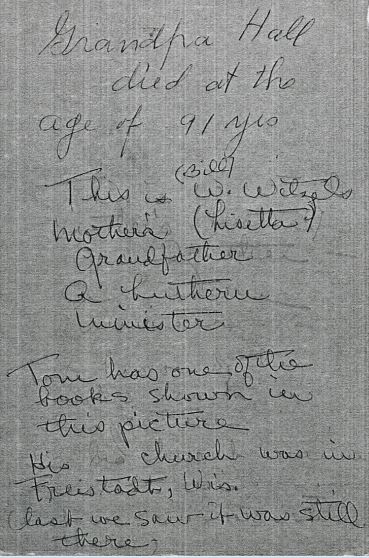 Grandpa Hall
died at the
age of 91 yrs
(Bill)
This is W. Witzels
mother's (Lisetta's)
Grandfather
A Luthern
minister
Tom has one of the
books shown in
this picture
His church was in
Freistadt, Wis.
(last we saw it was still
there,